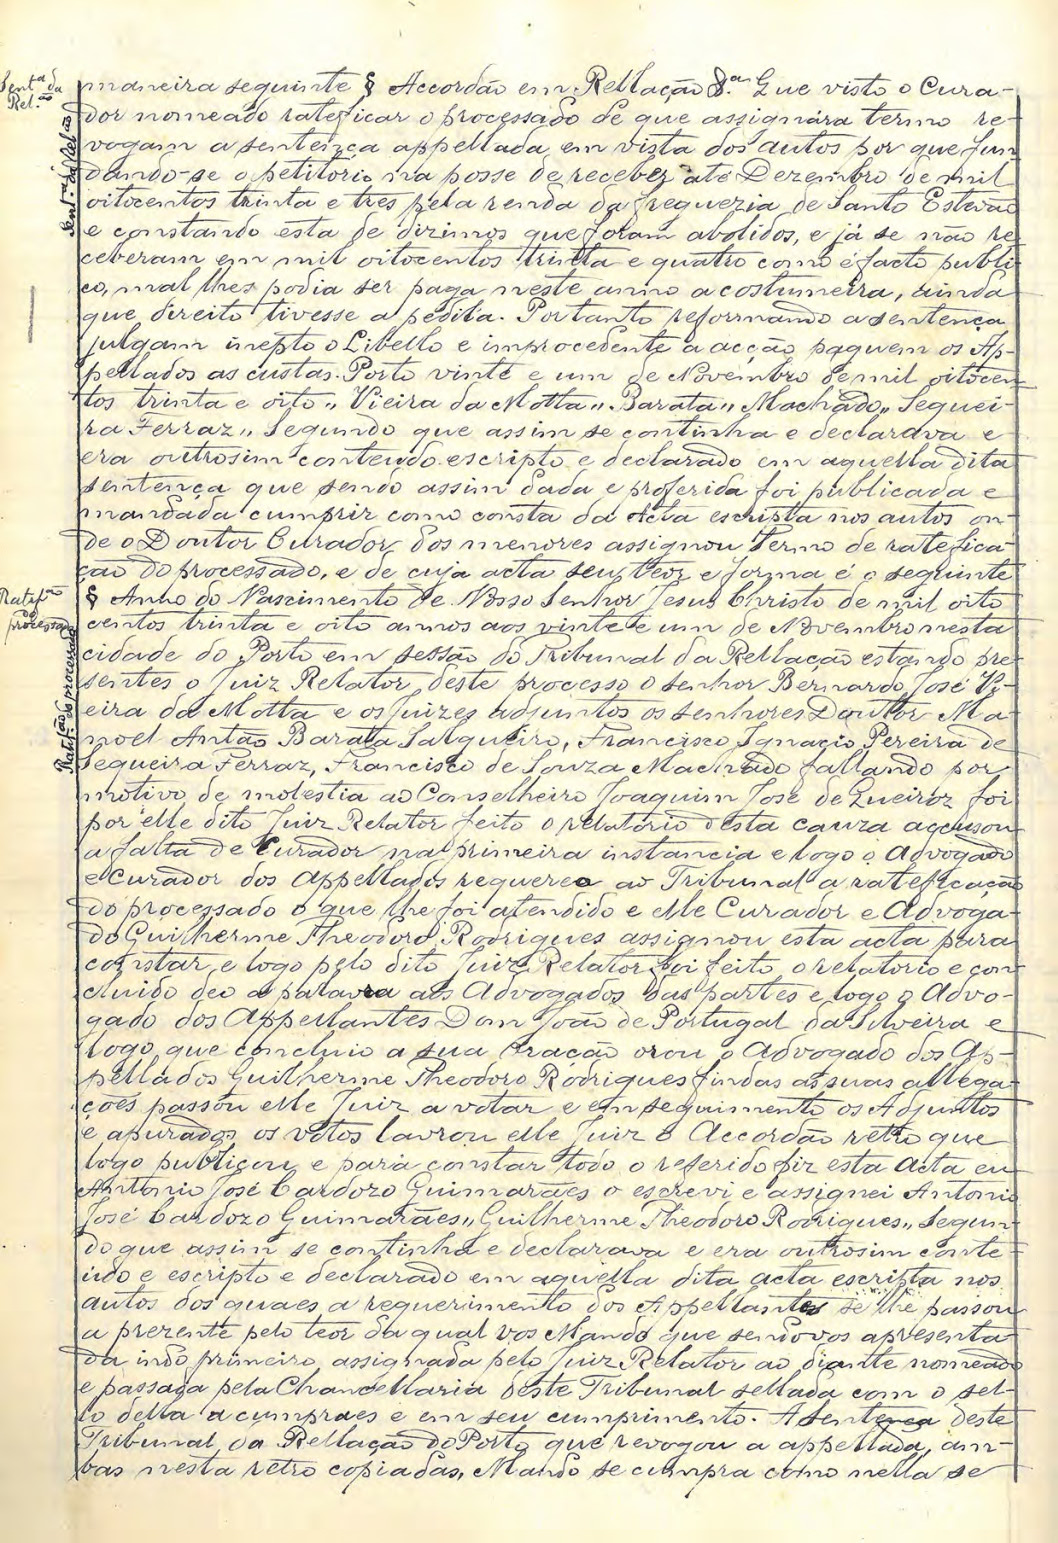 Sent.ª da
Rel.ão
Sent.ª da Rel.ão
maneira seguinte § Accordão em Rellação &.ª Que visto o Cura-
dor nomeado rateficar o processado de que assignára termo re-
vogam a sentença appellada em vista dos autos por que fun
dando-se o petitorio na posse de receber até Dezembro de mil
oitocentos trinta e tres pela renda da freguezia de Santo Estevão
e constando esta de dizimos que foram abolidos, e já se não re
ceberam em mil oitocentos trinta e quatro como é facto publi
co, mal lhes podia ser paga neste anno a costumeira, ainda
que direito tivesse a pedila. Portanto reformando a sentença
julgam inepto o Libello e improcedente a acção paguem os Ap-
pellados as custas. Porto vinte e um de Novembro de mil oitocen
tos trinta e oito „ Vieira da Motta „ Barata „ Machado „ Sequei-
ra Ferraz „ Segundo que assim se continha e declarava e
era outrosim conteudo escripto e declarado em aquella dita
sentença que sendo assim dada e proferida foi publicada e
mandada cumprir como consta da Acta escripta nos autos on-
de o Doutor Curador dos menores assignou Termo de ratefica-
ção do processado, e de cuja acta seu teor e forma é o seguinte
Ratif.ão
do
processado
Ratif.ão do processado
§ Anno do Nascimento de Nosso Senhor Jesus Christo de mil oito
centos trinta e oito annos aos vinte e um de Novembro nesta
cidade do Porto em sessão do Tribunal da Rellação estando pre
sentes o Juiz Relator deste processo o senhor Bernardo José Vi-
eira da Motta e os Juizes adjuntos os senhores Doutor Ma-
noel Antão Barata Salgueiro, Francisco Ignacio Pereira de
Sequeira Ferraz, Francisco de Souza Machado faltando por
motivo de molestia ao Conselheiro Joaquim José de Queiroz foi
por elle dito Juiz Relator feito o relatorio desta cauza accusou
a falta de Curador na primeira instancia e logo o Advogado
e Curador dos Appellados requereo ao Tribunal a rateficação
do processado o que lhe foi atendido e elle Curador e Advoga-
do Guilherme Theodoro Rodrigues assignou esta acta para
constar, e logo pelo dito Juiz Relator foi feito o relatorio e con
cluido deo a palavra aos Advogados das partes e logo o Advo-
gado dos Appellantes Dom João de Portugal da Silveira e
logo que concluio a sua Oração orou o Advogado dos Ap-
pellados Guilherme Theodoro Rodrigues findas as suas allega
ções passou elle Juiz a votar e em seguimento os Adjuntos
e apurados os votos lavrou elle Juiz o Accordão retro que
logo publicou, e para constar todo o referido fiz esta Acta eu
Antonio José Cardozo Guimarães o escrevi e assignei Antonio
José Cardozo Guimarães „ Guilherme Theodoro Rodrigues „ Segun-
do que assim se continha e declarava e era outrosim conte
udo e escripto e declarado em aquella dita acta escripta nos
autos dos quaes a requerimento dos Appellantes se lhe passou
a prezente pelo teor da qual vos Mando que sendovos apresenta
da, indo primeiro assignada pelo Juiz Relator ao diante nomeado
e passada pela Chancellaria deste Tribunal sellada com o sel-
lo della a cumpraes e em seu cumprimento. A sentença deste
Tribunal da Rellação do Porto que revogou a appellada, am-
bas nesta retro copiadas, Mando se cumpra como nella se